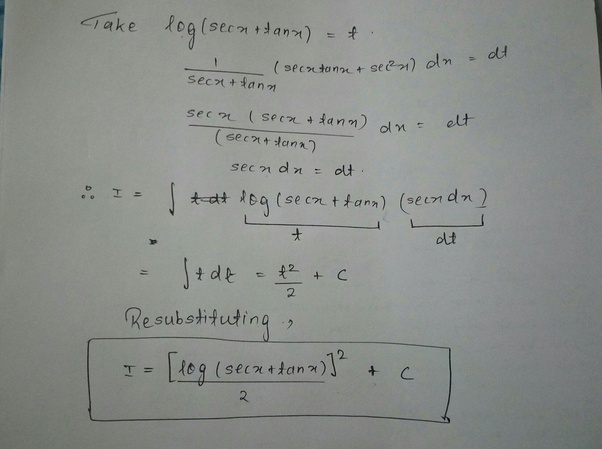 Take log(secx + tanx) = t.
1/(secx + tanx) (secxtanx + sec²x) dx = dt
secx (secx + tanx)/(secx + tanx) dx = dt
secx dx = dt.
∴ I = ∫ t dt log(secx + tanx) (secx dx)
t dt
= ∫ t dt = t²/2 + C
Resubstituting,
I = [log(secx + tanx)]²/2 + C